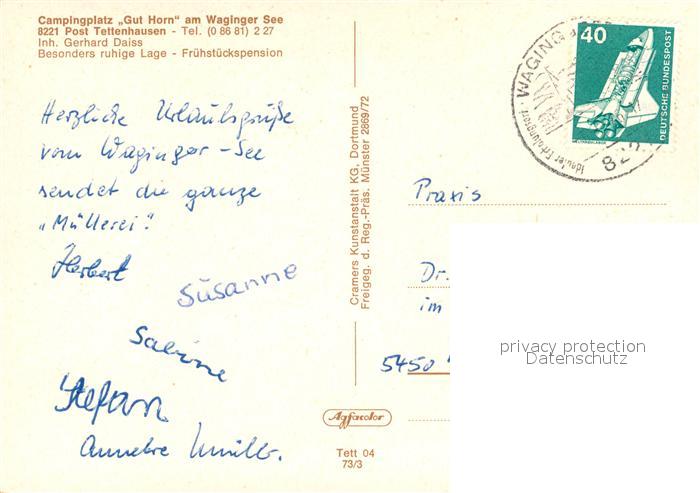 Campingplatz „Gut Horn“ am Waginger See
8221 Post Tettenhausen - Tel. (0 86 81) 2 27
Inh. Gerhard Daiss
Besonders ruhige Lage - Frühstückspension
Herzliche Urlaubsgrüße
vom Waginger-See
sendet die ganze
„Müllerei“.
Herbert
Susanne
Sabine
Stefan
Cramers Kunstanstalt KG, Dortmund
Freigeg. d. Reg.-Präs. Münster 2669/72
Agfacolor
Tett 04
73/3
40
DEUTSCHE BUNDESPOST
WAGING
Idealer Erholungsort
82
Praxis
Dr.
im
5450
privacy protection
Datenschutz